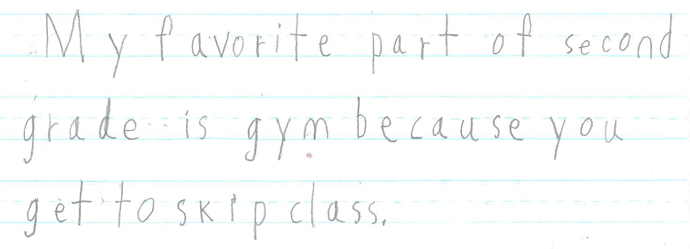 My favorite part of second
grade is gym because you
get to skip class.